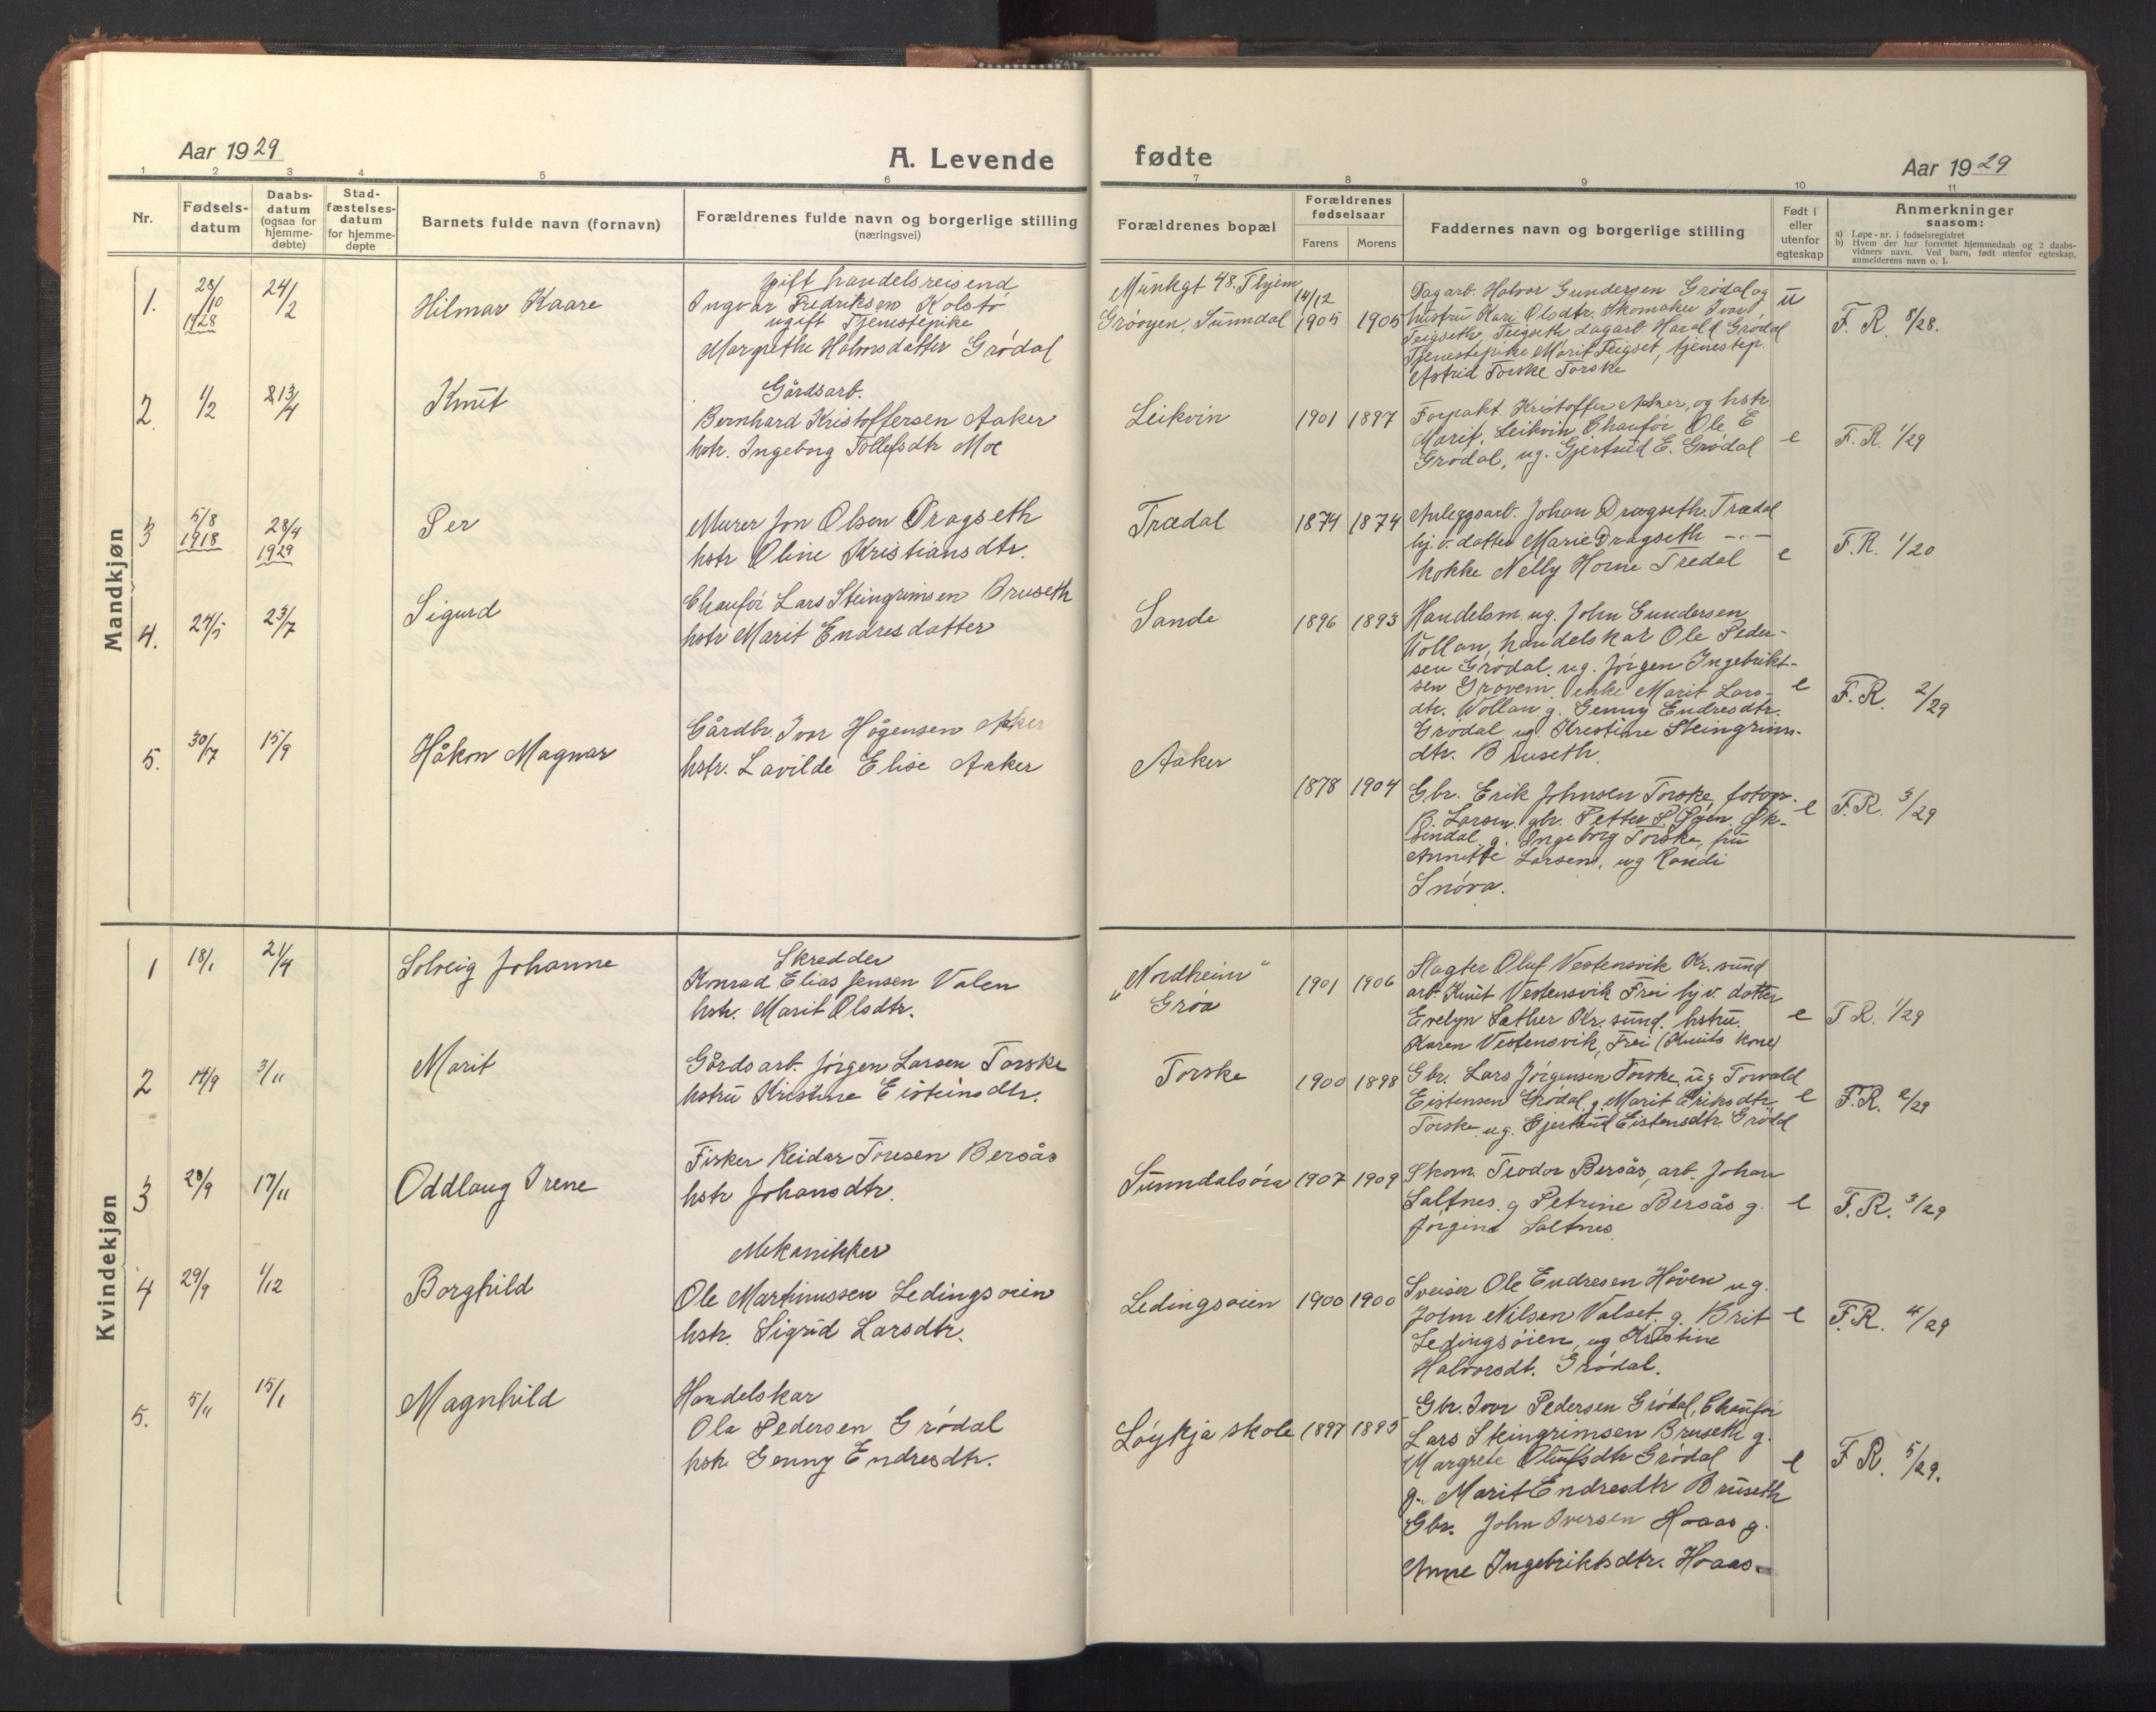 Aar 1929
A. Levende
1 2 3 4 5 6
Nr.
Fødsels-
datum
Daabs-
datum
(ogsaa for
hjemme-
døbte)
Stad-
fæstelses-
datum
for hjemme-
døpte
Barnets fulde navn (fornavn)
Forældrenes fulde navn og borgerlige stilling
(næringsvei)
Mandkjøn
1.
28/10
1928
24/2
Hilmar Kaare
gift handelsreisend
Ingvar Fredriksen Kolstø
ugift Tjenestepike
Margrethe Halvorsdatter Grødal
2.
1/2
13/4
Knut
Gårdsarb.
Bernhard Kristoffersen Aaker
hstr. Ingeborg Tollefsdtr Moe
3
5/8
1918
28/4
1929
Per
Murer Jon Olsen Dragseth
hstr Oline Kristiansdtr.
4.
24/5
23/7
Sigurd
Chaufør Lars Steingrimsen Bruseth
hstr Marit Endresdatter
5.
30/7
15/9
Håkon Magnar
Gårdbr. Ivar Hågensen Aaker
hstr. Lavilde Elise Aaker
Kvindekjøn
1
18/1
21/4
Solveig Johanne
Skredder
Konrad Elias Jensen Valen
hstr. Marit Olsdtr.
2
14/9
3/11
Marit
Gårdsarb. Jørgen Larsen Torske
hstru Kristine Eisteinsdtr.
3
28/9
17/11
Oddlaug Irene
Fisker Reidar Toresen Bersås
hstr Johansdtr.
4
29/9
1/12
Borghild
Mekanikker
Ole Martinussen Ledingsøien
hstr. Sigrid Larsdtr.
5.
5/11
15/1
Magnhild
Handelskar
Ola Pedersen Grødal
hstr Genny Endresdtr.
fødte
Aar 1929
7 8 9 10 11
Forældrenes bopæl
Forældrenes
fødselsaar
Farens Morens
Faddernes navn og borgerlige stilling
Født i
eller
utenfor
egteskap
Anmerkninger
saasom:
a) Løpe-nr. i fødselsregistret
b) Hvem der har forrettet hjemmedaab og 2 daabs-
vidners navn. Ved barn, født utenfor egteskap,
anmelderens navn o. l.
Munkgt 48. Thjem
Grøvyen, Sunndal
14/12
1905 1905
Dagarb. Halvor Gundersen Grødal og
hustru Kari Olsdtr. Skomaker Ivar
Teigseth, Teigseth dagarb. Harald Grødal
Tjenestepike Marit Teigset, tjenestep.
Astrid Torske Torske
u
F. R. 8/28.
Leikvin
1901 1897
Forpakt. Kristoffer Aaker, og hstr.
Marit, Leikvin Chaufør Ole E
Grødal, ug. Gjertrud E. Grødal
e
F. R. 1/29
Trædal
1874 1874
Anleggsarb. Johan Dragseth. Trædal
hj.v. datter Marie Dragseth -"-
kokke Nelly Horne Tredal
e
F.R. 1/20
Sande
1896 1893
Handelsm. ug. John Gundersen
Vollan, handelskar Ole Peder-
sen Grødal, ug. Jørgen Ingebrikt-
sen Grovem, enke Marit Lars-
dtr. Vollan g. Genny Endresdtr.
Grødal, ug. Kristine Steingrims-
dtr. Bruseth.
e
F.R. 2/29
Aaker
1878 1904
Gbr. Erik Johnsen Torske, fotogr.
B. Larsen, gbr. Petter P. Øyen, Øk-
sendal, g. Ingeborg Torske, fru
Annette Larsen, ug Randi
Snøva.
e
F.R. 3/29
"Nordheim"
Grøa
1901 1906
Slagter Oluf Vestensvik Kr.sund
arb. Knut Vestensvik Frei hj.v. datter
Evelyn Sæther Kr.sund. hstru.
Karen Vestensvik, Frei (Knuts kone)
e
F. R. 1/29
Torske
1900 1898
Gbr. Lars Jørgensen Torske, ug Torvald
Eistensen Grødal, g. Marit Eriksdtr
Torske, ug. Gjertrud Eistensdtr. Grødal
e
F.R. 2/29
Sunndalsøra
1907 1909
Skom. Teodor Bersås, arb. Johan
Saltnes. g Petrine Bersås g.
Jørgine Saltnes
e
F.R. 3/29
Ledingsøien
1900 1900
Sveiser Ole Endresen Hoven ug.
John Nilsen Valset. g. Brit
Ledingsøien, ug Kristine
Halvorsdt. Grødal.
e
F.R. 4/29
Løykja skole
1897 1895
Gbr. Ivar Pedersen Grødal, Chaufør
Lars Steingrimsen Bruseth g.
Margrete Olufsdtr Grødal
g. Marit Endresdtr Bruseth
Gbr. John Iversen Hoaas g.
Anne Ingebriktsdtr. Hoaas
e
F. R. 5/29.